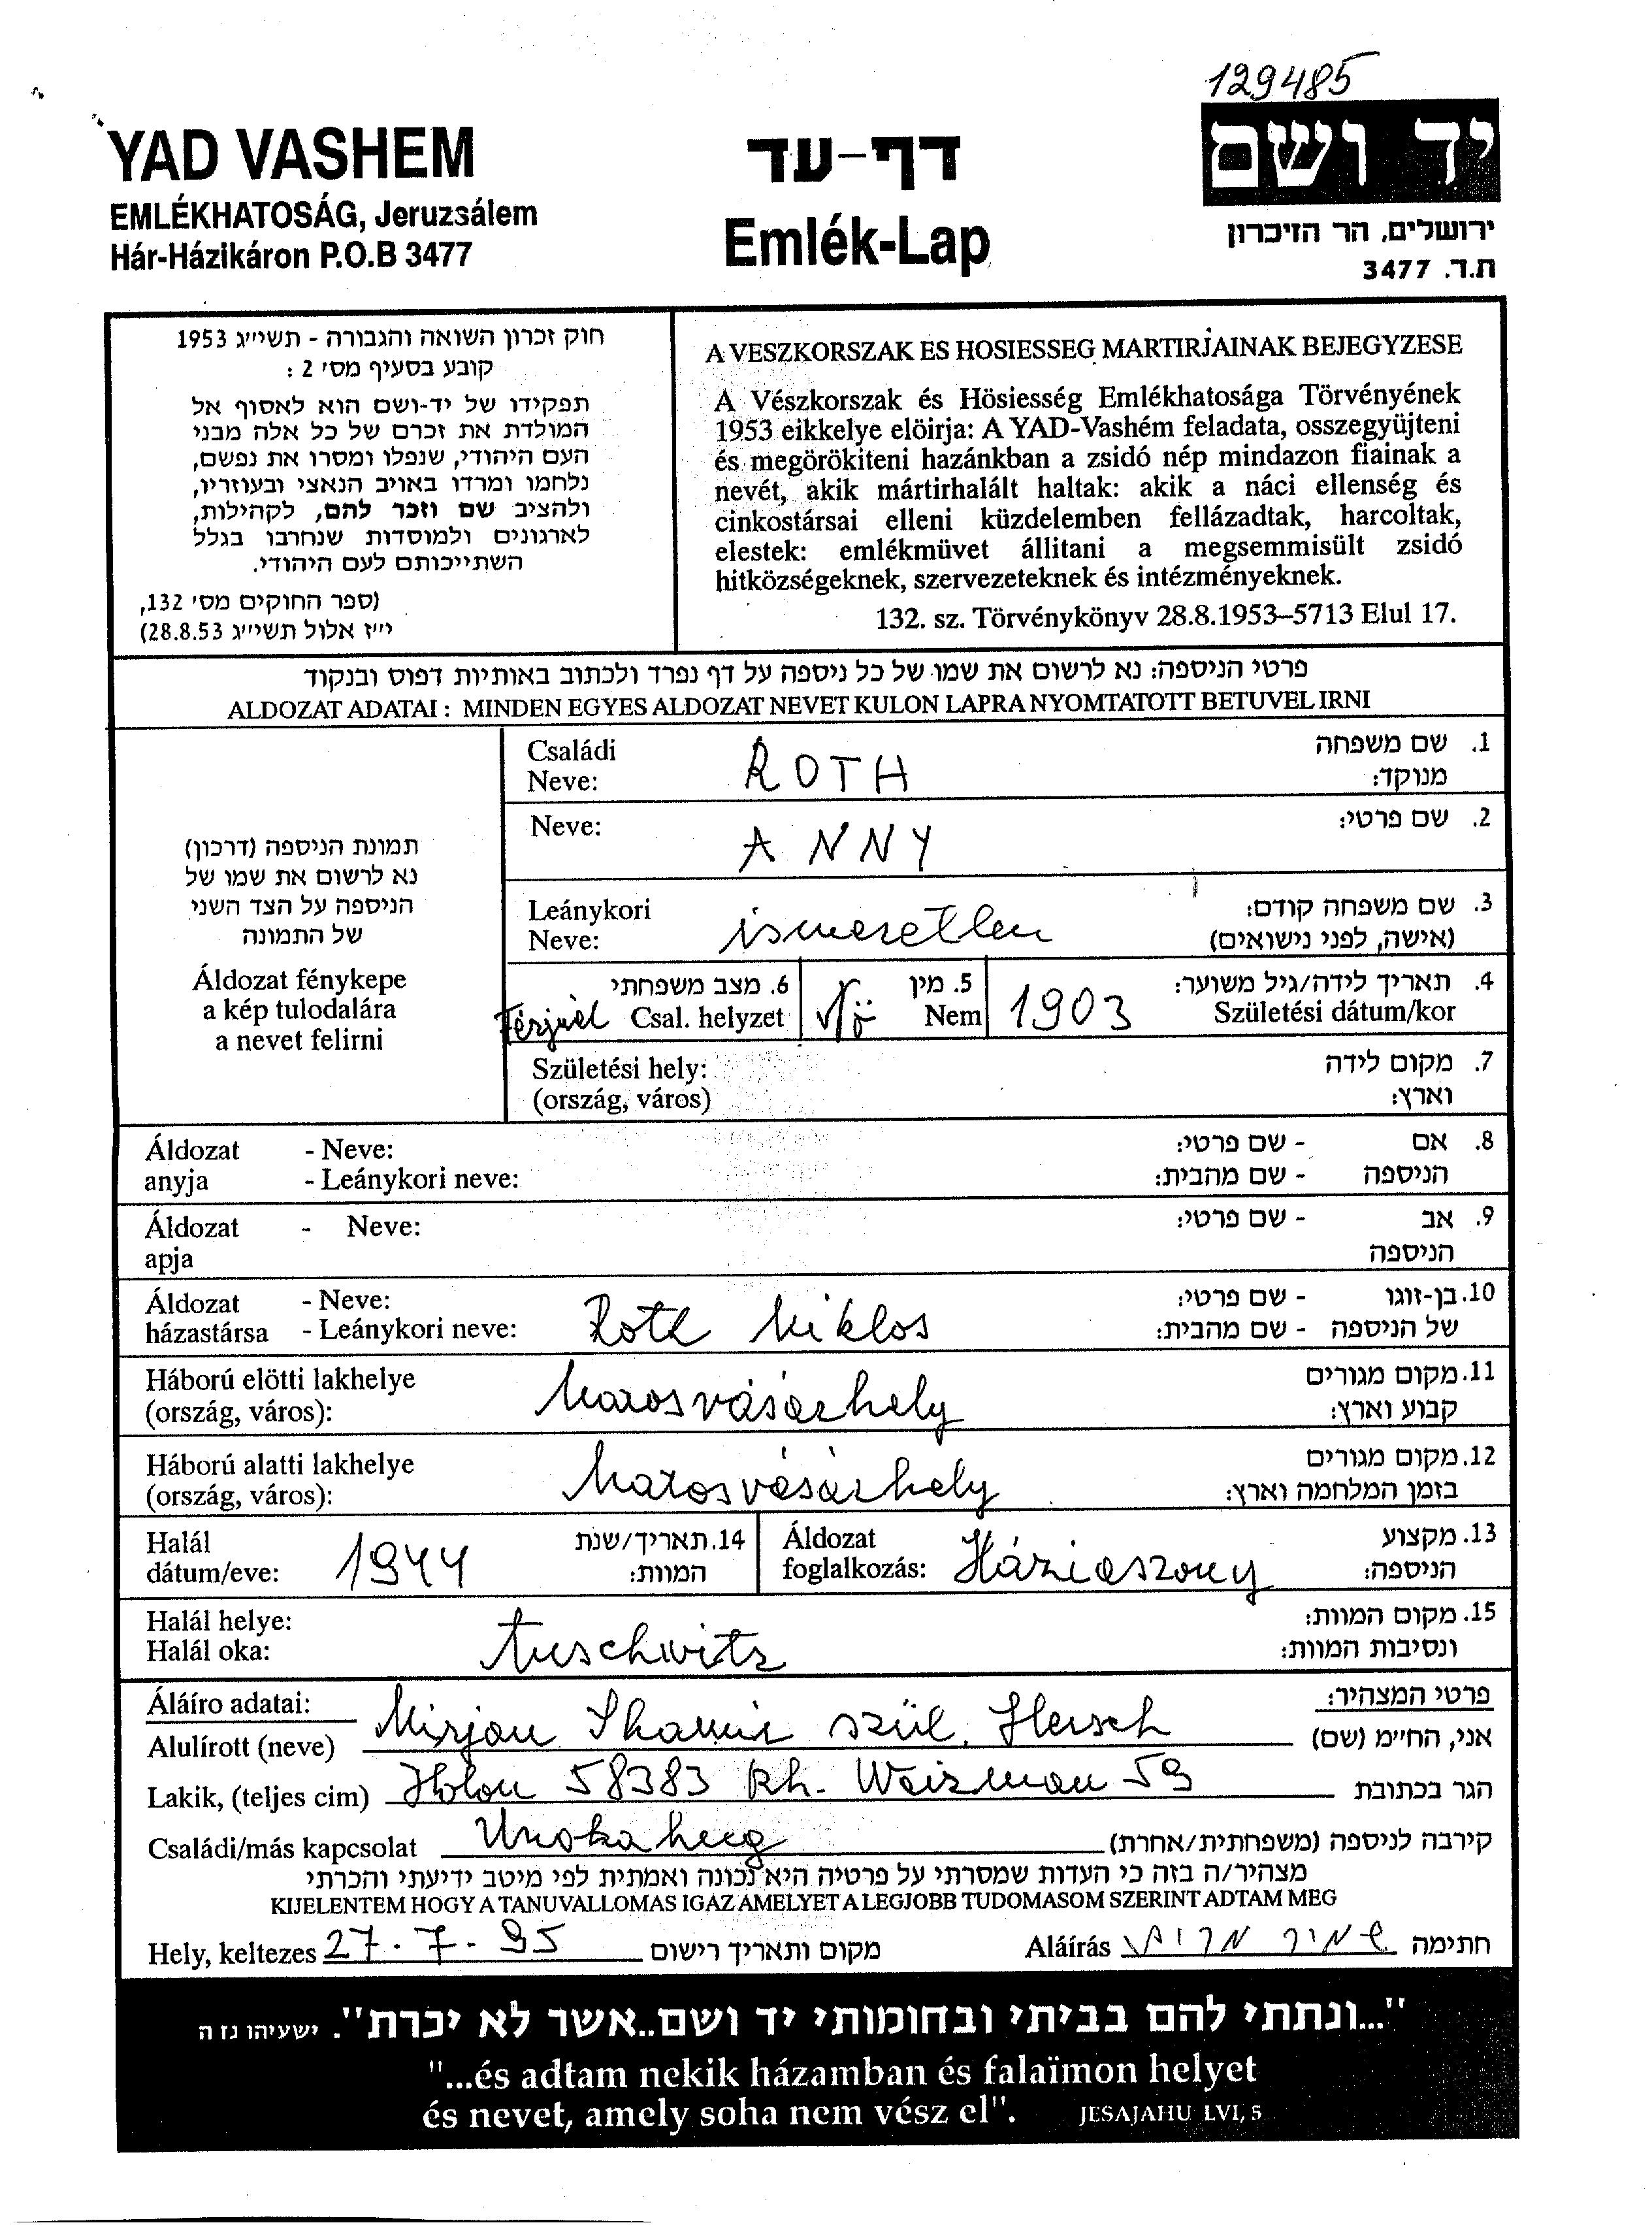 129485
YAD VASHEM
EMLÉKHATOSÁG, Jeruzsálem
Hár-Házikáron P.O.B 3477
דף-עד
Emlék-Lap
יד ושם
ירושלים, הר הזיכרון
ת.ד. 3477
חוק זכרון השואה והגבורה - תשי״ג 1953
קובע בסעיף מס׳ 2 :
תפקידו של יד-ושם הוא לאסוף אל
המולדת את זכרם של כל אלה מבני
העם היהודי, שנפלו ומסרו את נפשם,
נלחמו ומרדו באויב הנאצי ובעוזריו,
ולהציב שם וזכר להם, לקהילות,
לארגונים ולמוסדות שנחרבו בגלל
השתייכותם לעם היהודי.
(ספר החוקים מס׳ 132,
י״ז אלול תשי״ג 28.8.53)
A VESZKORSZAK ES HOSIESSEG MARTIRJAINAK BEJEGYZESE
A Vészkorszak és Hösiesség Emlékhatosága Törvényének
1953 eikkelye elöirja: A YAD-Vashém feladata, osszegyüjteni
és megörökiteni hazánkban a zsidó nép mindazon fiainak a
nevét, akik mártirhalált haltak: akik a náci ellenség és
cinkostársai elleni küzdelemben fellázadtak, harcoltak,
elestek: emlékmüvet állitani a megsemmisült zsidó
hitközségeknek, szervezeteknek és intézményeknek.
132. sz. Törvénykönyv 28.8.1953–5713 Elul 17.
פרטי הניספה: נא לרשום את שמו של כל ניספה על דף נפרד ולכתוב באותיות דפוס ובנקוד
ALDOZAT ADATAI : MINDEN EGYES ALDOZAT NEVET KULON LAPRA NYOMTATOTT BETUVEL IRNI
תמונת הניספה (דרכון)
נא לרשום את שמו של
הניספה על הצד השני
של התמונה
Áldozat fénykepe
a kép tulodalára
a nevet felirni
Családi
Neve:
ROTH
1. שם משפחה
מנוקד:
Neve:
ANNY
2. שם פרטי:
Leánykori
Neve:
ismeretlen
3. שם משפחה קודם:
(אישה, לפני נישואים)
Férjnél
6. מצב משפחתי
Csal. helyzet
Nö
5. מין
Nem
1903
4. תאריך לידה/גיל משוער:
Születési dátum/kor
Születési hely:
(ország, város)
7. מקום לידה
וארץ:
Áldozat - Neve:
anyja - Leánykori neve:
8. אם - שם פרטי:
הניספה - שם מהבית:
Áldozat - Neve:
apja
9. אב - שם פרטי:
הניספה
Áldozat - Neve:
házastársa - Leánykori neve:
Roth Miklos
10. בן-זוגו - שם פרטי:
של הניספה - שם מהבית:
Háború elötti lakhelye
(ország, város):
Marosvásárhely
11. מקום מגורים
קבוע וארץ:
Háború alatti lakhelye
(ország, város):
Marosvásárhely
12. מקום מגורים
בזמן המלחמה וארץ:
Halál
dátum/eve:
1944
14. תאריך/שנת
המוות:
Áldozat
foglalkozás:
Háziaszony
13. מקצוע
הניספה:
Halál helye:
Halál oka:
Auschwitz
15. מקום המוות:
ונסיבות המוות:
Áláíro adatai:
פרטי המצהיר:
Alulírott (neve) Mirjan Shamir szül. Hersch אני, החיימ (שם)
Lakik, (teljes cim) Holon 58383 Rh. Weizman 59 הגר בכתובת
Családi/más kapcsolat Unokahug קירבה לניספה (משפחתית/אחרת)
מצהיר/ה בזה כי העדות שמסרתי על פרטיה היא נכונה ואמתית לפי מיטב ידיעתי והכרתי
KIJELENTEM HOGY A TANUVALLOMAS IGAZ AMELYET A LEGJOBB TUDOMASOM SZERINT ADTAM MEG
Hely, keltezes 27.7.95 מקום ותאריך רישום
Aláírás שמיר מרים חתימה
"...ונתתי להם בביתי ובחומותי יד ושם..אשר לא יכרת". ישעיהו נז ה
"...és adtam nekik házamban és falaïmon helyet
és nevet, amely soha nem vész el". JESAJAHU LVI, 5